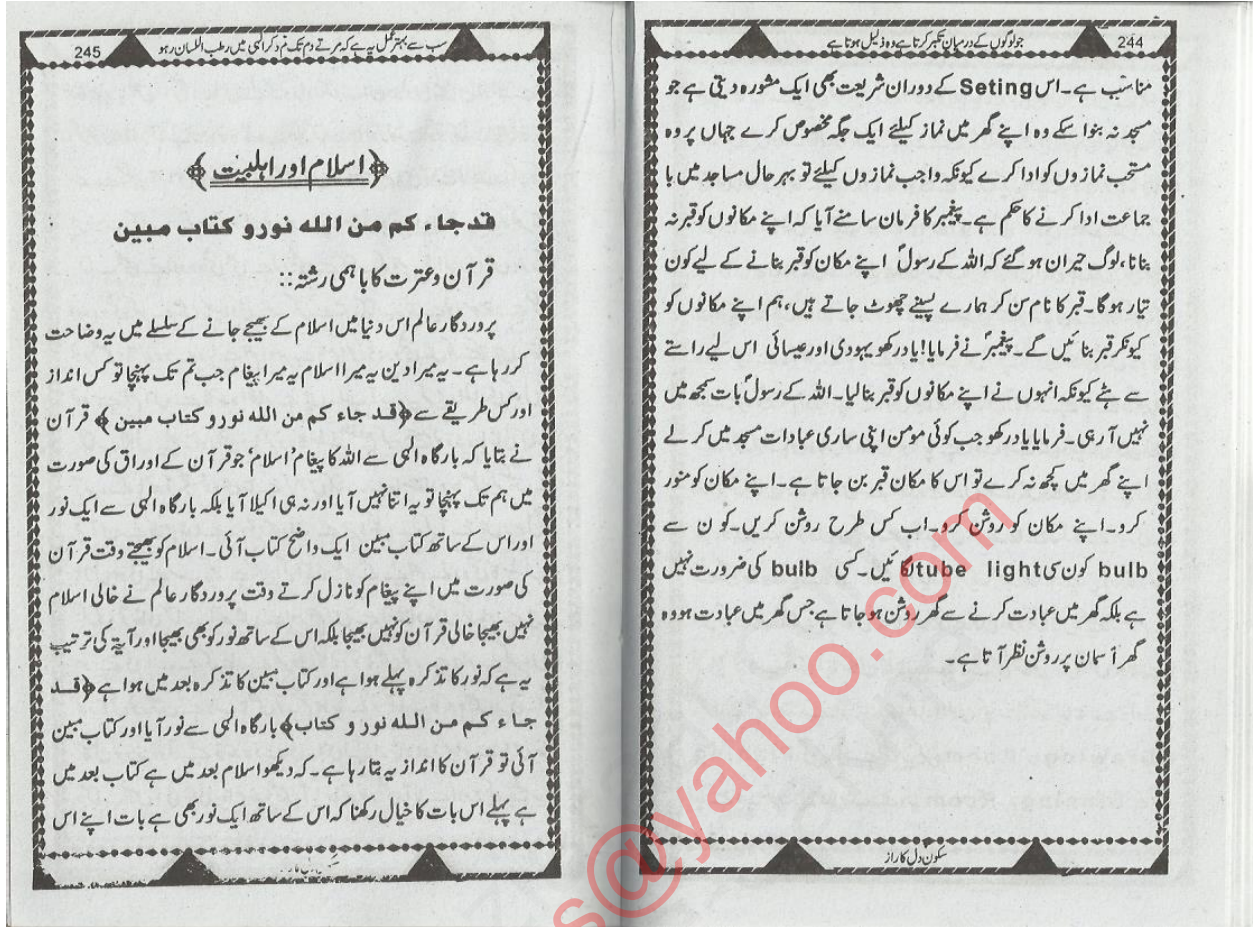 244
جو لوگوں کے درمیان تکبر کرتا ہے وہ ذلیل ہوتا ہے
مناسب ہے۔ اس Seting کے دوران شریعت بھی ایک مشورہ دیتی ہے جو
مسجد نہ بنوا سکے وہ اپنے گھر میں نماز کیلئے ایک جگہ مخصوص کرے جہاں پر وہ
مستحب نمازوں کو ادا کرے کیونکہ واجب نمازوں کیلئے تو بہر حال مساجد میں با
جماعت ادا کرنے کا حکم ہے۔ پیغمبر کا فرمان سامنے آیا کہ اپنے مکانوں کو قبر نہ
بنانا، لوگ حیران ہو گئے کہ اللہ کے رسولؐ اپنے مکان کو قبر بنانے کے لیے کون
تیار ہوگا۔ قبر کا نام سن کر ہمارے پسینے چھوٹ جاتے ہیں، ہم اپنے مکانوں کو
کیونکر قبر بنائیں گے۔ پیغمبرؐ نے فرمایا! یاد رکھو یہودی اور عیسائی اس لیے راستے
سے ہٹے کیونکہ انہوں نے اپنے مکانوں کو قبر بنا لیا۔ اللہ کے رسولؐ بات سمجھ میں
نہیں آ رہی۔ فرمایا یاد رکھو جب کوئی مومن اپنی ساری عبادات مسجد میں کر لے
اپنے گھر میں کچھ نہ کرے تو اس کا مکان قبر بن جاتا ہے۔ اپنے مکان کو منور
کرو۔ اپنے مکان کو روشن کرو۔ اب کس طرح روشن کریں۔ کون سے
bulb کون سی tube light لگائیں۔ کسی bulb کی ضرورت نہیں
ہے بلکہ گھر میں عبادت کرنے سے گھر روشن ہو جاتا ہے جس گھر میں عبادت ہو وہ
گھر آسمان پر روشن نظر آتا ہے۔
سکون دل کا راز
245
سب سے بہتر عمل یہ ہے کہ مرتے دم تک تم ذکر الٰہی میں رطب اللسان رہو
﴿اسلام اور اہلبیت﴾
قد جاء کم من الله نور و کتاب مبین
قرآن و عترت کا باہمی رشتہ::
پروردگار عالم اس دنیا میں اسلام کے بھیجے جانے کے سلسلے میں یہ وضاحت
کر رہا ہے۔ یہ میرا دین یہ میرا اسلام یہ میرا پیغام جب تم تک پہنچا تو کس انداز
اور کس طریقے سے ﴿قد جاء کم من الله نور و کتاب مبین﴾ قرآن
نے بتایا کہ بارگاہ الٰہی سے اللہ کا پیغام 'اسلام' جو قرآن کے اوراق کی صورت
میں ہم تک پہنچا تو یہ اتنا نہیں آیا اور نہ ہی اکیلا آیا بلکہ بارگاہ الٰہی سے ایک نور
اور اس کے ساتھ کتاب مبین ایک واضح کتاب آئی۔ اسلام کو بھیجتے وقت قرآن
کی صورت میں اپنے پیغام کو نازل کرتے وقت پروردگار عالم نے خالی اسلام
نہیں بھیجا خالی قرآن کو نہیں بھیجا بلکہ اس کے ساتھ نور کو بھی بھیجا اور آیۃ کی ترتیب
یہ ہے کہ نور کا تذکرہ پہلے ہوا ہے اور کتاب مبین کا تذکرہ بعد میں ہوا ہے ﴿قد
جاء کم من الله نور و کتاب﴾ بارگاہ الٰہی سے نور آیا اور کتاب مبین
آئی تو قرآن کا انداز یہ بتا رہا ہے۔ کہ دیکھو اسلام بعد میں ہے کتاب بعد میں
ہے پہلے اس بات کا خیال رکھنا کہ اس کے ساتھ ایک نور بھی ہے بات اپنے اس
s@yahoo.com